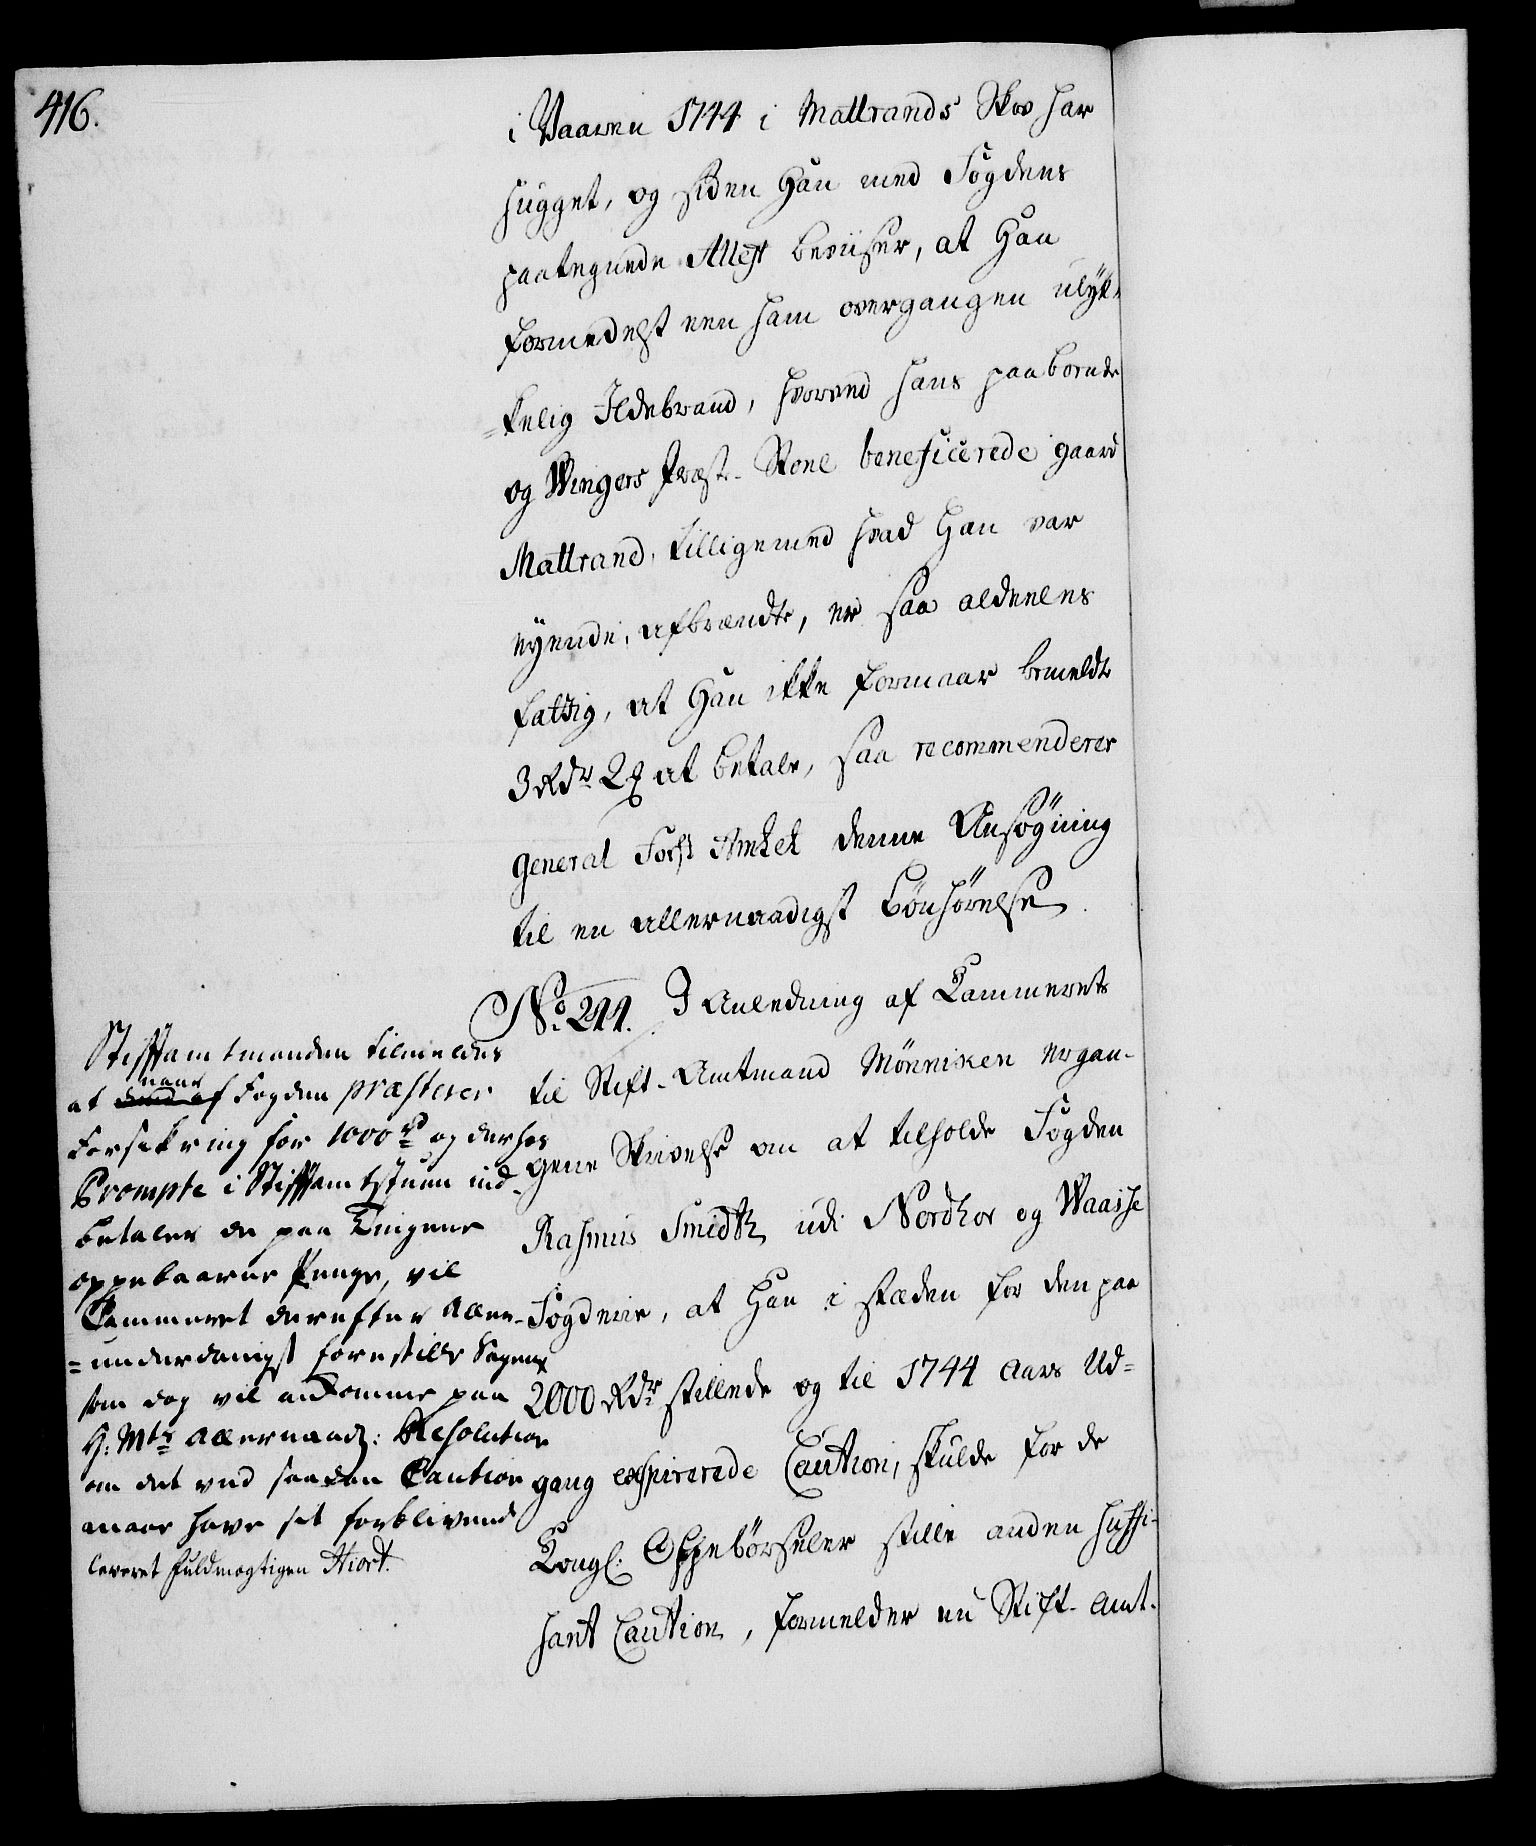 416.
i Vaaren 1744 i Mattrands Skov har
hugget, og siden Han med Fogdens
paategnede Attest beviiser, at Han
formedelst een ham overgangen ulyk-
=kelig Ildebrand, hvorved hans paaboende
og Wingers Præste-Bone beneficerede gaard
Mattrand, tilligemed hvad Han var
eyende, afbrændte, er saa aldeeles
fattig, at Han ikke formaar bemeldte
3 Rdr 2 at betale, saa recommenderer
General Forst Amtet denne Ansögning
til en allernaadigst Bönhörelse
No. 244. I Anledning af Cammerets
til Stift-Amtmand Mönniken ergan-
gene Skrivelse om at tilholde Fogden
Rasmus Smidth udi Nordhor og Waasse
Fogderie, at Han i stæden for den paa
2000 Rdr stillede og til 1744 Aars Ud=
gang exspirerede Caution, skulde for de
Kongl. Oppebörseler stille anden suffi-
sant Caution, formelder nu Stift-Amt-
Stiftamtmanden tilmeldes
at naar Fogden præsterer
Forsikring for 1000 rd og derhos
Prompte i Stiftamtstuen ind-
betaler de paa Tingene
oppebaarne Penge, vil
Cammeret derefter Aller-
=underdanigst forestille Sagen
som dog vil ankomme paa
H: Mts Allernaad: Resolution
om det ved saadan Caution
maae have sit forblivende
leveret Fuldmægtigen Hiort.